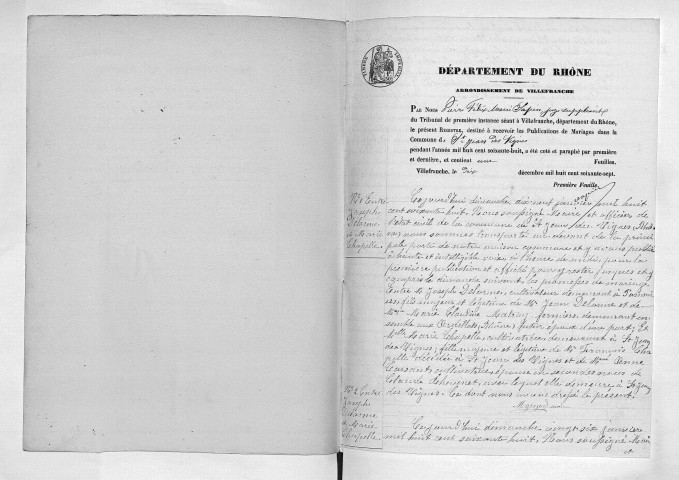 DÉPARTEMENT DU RHÔNE
ARRONDISSEMENT DE VILLEFRANCHE
PAR NOUS Pierre Félix Marie juge suppléant
du Tribunal de première instance séant à Villefranche, département du Rhône,
le présent REGISTRE, destiné à recevoir les Publications de Mariages dans la
Commune de St Jean des Vignes
pendant l'année mil huit cent soixante-huit, a été coté et paraphé par première
et dernière, et contient une Feuilles.
Villefranche, le dix décembre mil huit cent soixante-sept.
Première Feuille.
No 1 Entre
Joseph
Delorme
et Marie
Chapelle.
Cejourd'hui dimanche dix neuf janvier mil huit
cent soixante huit, Nous soussigné Maire et officier de
l'état civil de la commune de St Jean des Vignes, Rhô-
ne, nous sommes transporté au devant de la princi-
pale porte de notre maison commune et y avons publié
à haute et intelligible voix, à l'heure de midi, pour la
première publication et affiché pour y rester jusques et y
compris le dimanche suivant, les promesses de mariage
Entre M. Joseph Delorme, cultivateur demeurant à
fils majeur et légitime de Mr Jean Delorme et de
Mme Marie Claudine fermiers demeurant en-
semble aux Rhône, futur époux d'une part; Et
Melle Marie Chapelle, cultivatrice demeurant à St Jean
des Vignes, fille majeure et légitime de Mr François Cha-
pelle décédé à St Jean des Vignes et de Mme Anne
cultivatrice, épouse en secondes noces de
Claude avec lequel elle demeure à St Jean
des Vignes. Ce dont nous avons dressé le présent.
No 2 Entre
Joseph
Delorme
et Marie
Chapelle.
Cejourd'hui dimanche vingt six janvier
mil huit cent soixante huit, Nous soussigné Maire
et